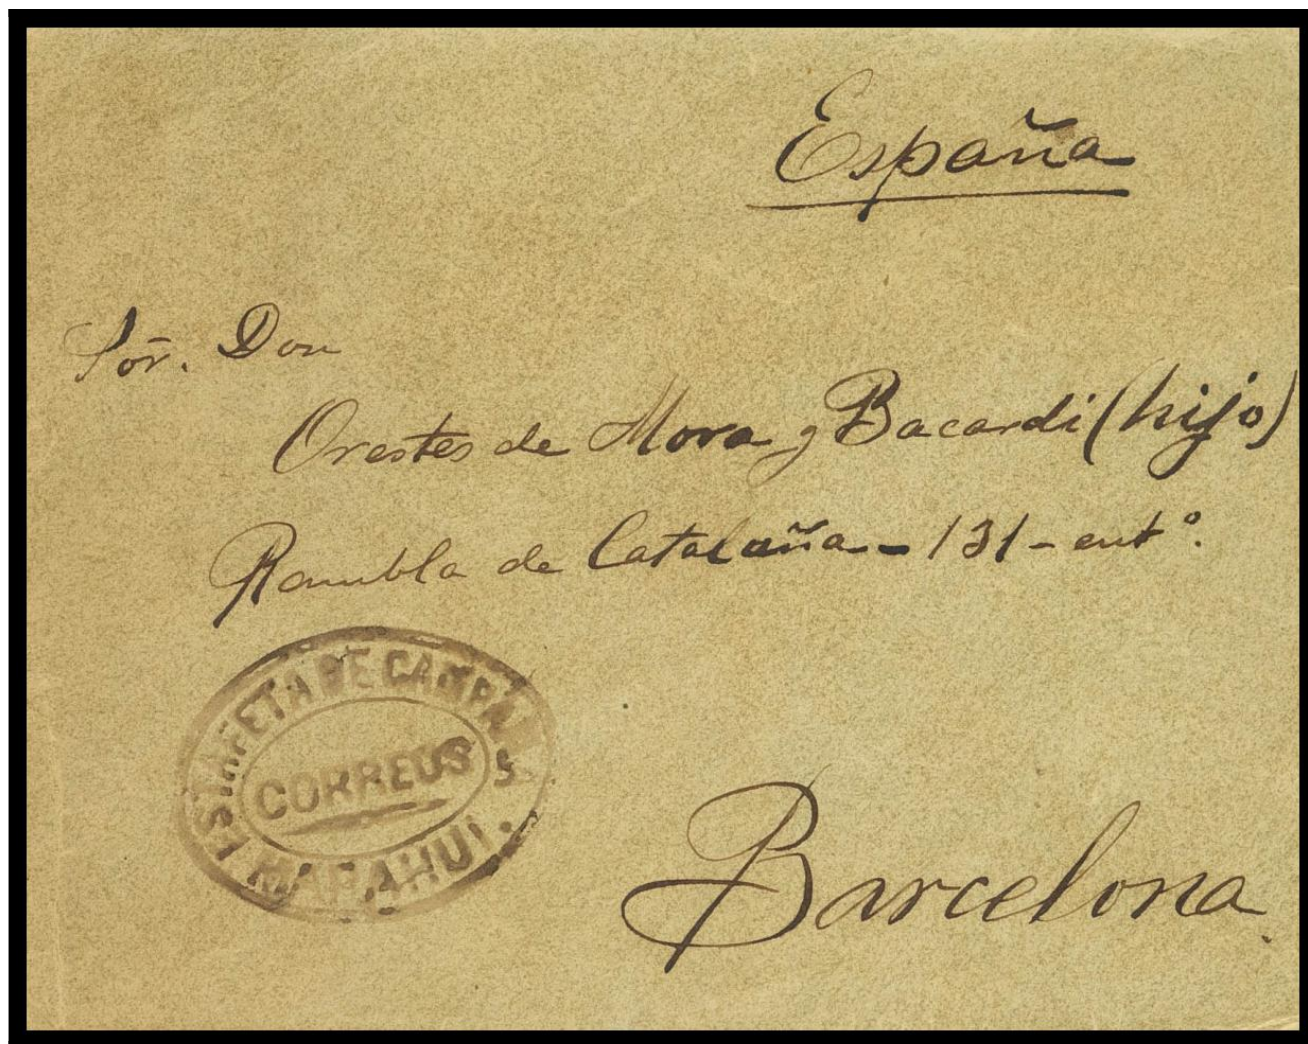 España
Sor. Don
Orestes de Mora y Bacardi (hijo)
Rambla de Cataluña - 131 - entº.
ESTAFETA DE CAMPAÑA
CORREOS
MARAHUI.
Barcelona.